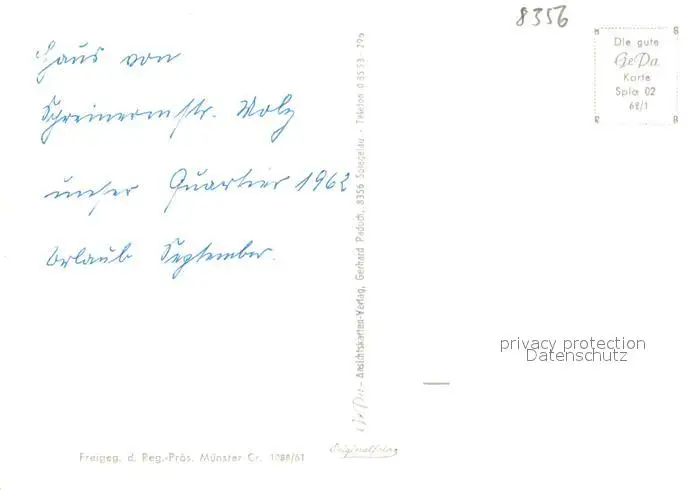 8356
Die gute
GePa
Karte
Spla 02
62/1
Haus von
Schreinermstr. Molz
unser Quartier 1962
Urlaub September.
GePa - Ansichtskarten-Verlag, Gerhard Paduch, 8356 Spiegelau - Telefon 08553-296
privacy protection
Datenschutz
Freigeg. d. Reg.-Präs. Münster Cr. 1088/61
Originalfoto